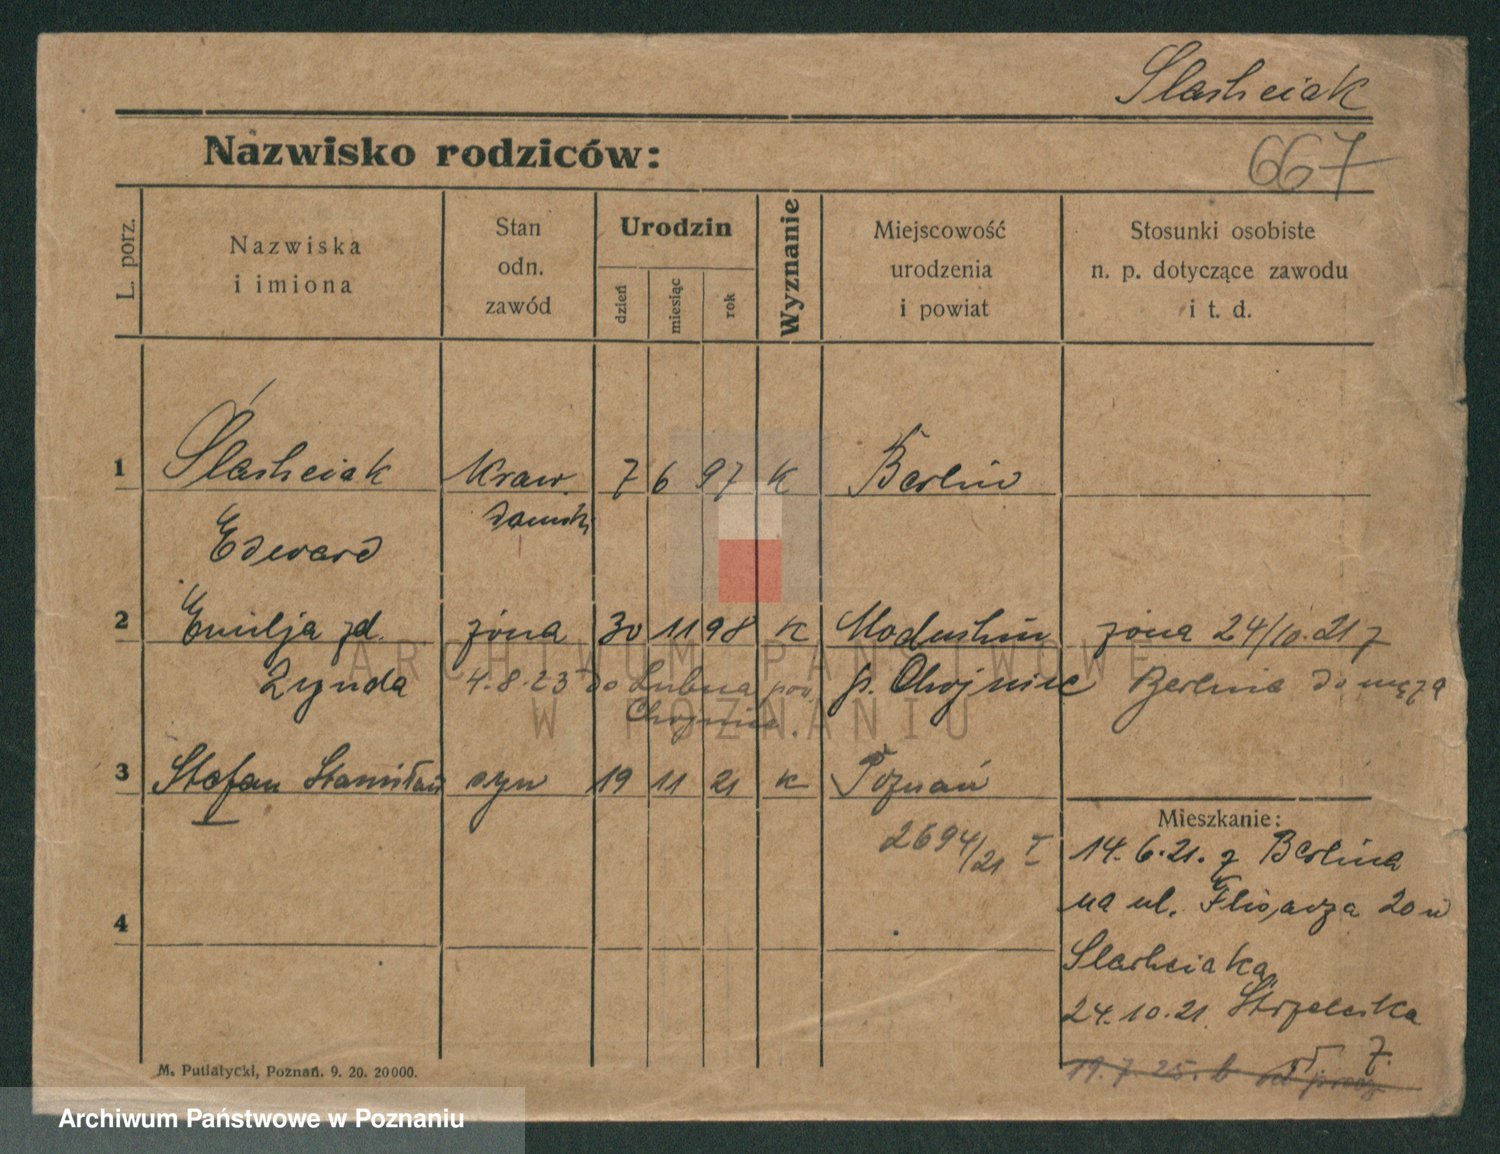 Slashciak
667
Nazwisko rodziców:
L. porz.
Nazwiska
i imiona
Stan
odn.
zawód
Urodzin
dzień
miesiąc
rok
Wyznanie
Miejscowość
urodzenia
i powiat
Stosunki osobiste
n. p. dotyczące zawodu
i t. d.
1 Slashciak Kraw. 7 6 97 K Berlin
damski
Edward
2 Emilja zd. żona 30 11 98 K żona 24/10.21 z
Zynda 4.8.23 do Lubna pow. p. Chojnice Berlina do męża
Chojnice
3 Stefan Stanisław syn 19 11 21 K Poznań
2694/21 I
4
Mieszkanie:
14.6.21. z Berlina
na ul. 20 u
Slashciaka
24.10.21. Strzelecka
7.
19.7.25.
M. Putiatycki, Poznań. 9. 20. 20000.
ARCHIWUM PAŃSTWOWE
W POZNANIU
Archiwum Państwowe w Poznaniu